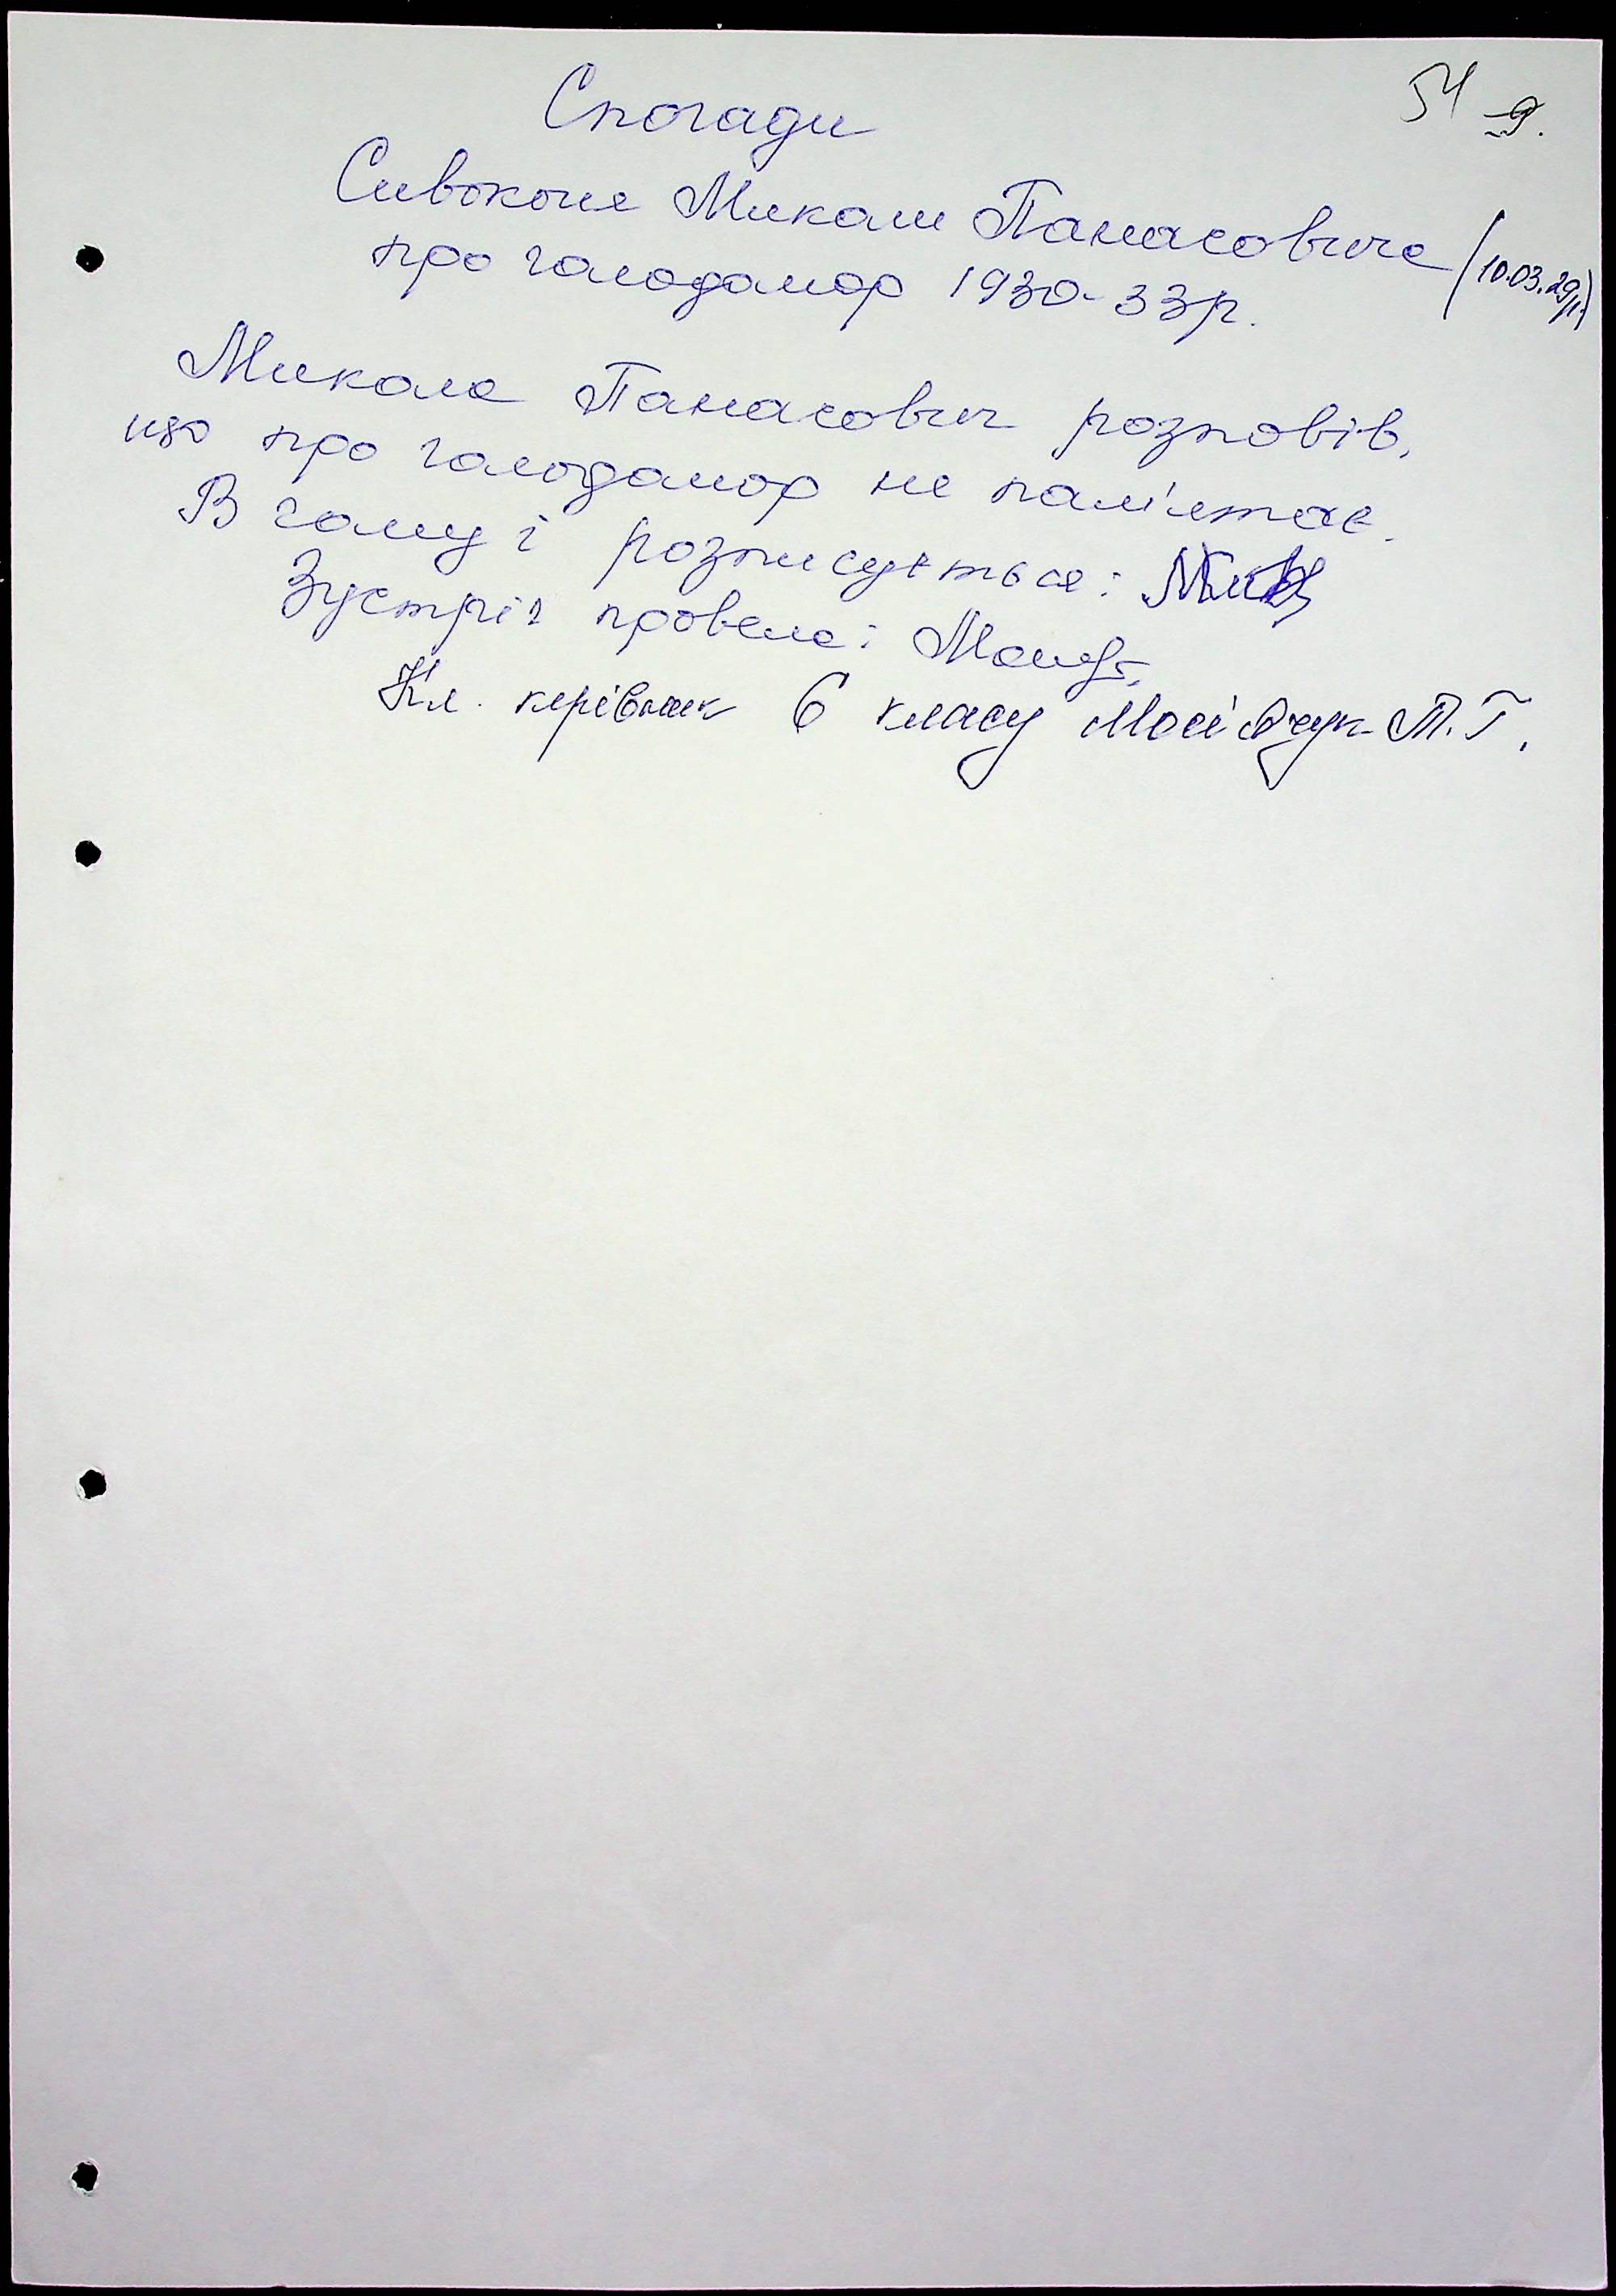 54
Спогади
Сивоконя Миколи Панасовича (10.03.29р.)
про голодомор 1930-33р.
Микола Панасович розповів,
що про голодомор не пам'ятає.
В чому і розписується:
Зустріч провела:
Кл. керівник 6 класу Мосійчук Т.Г.